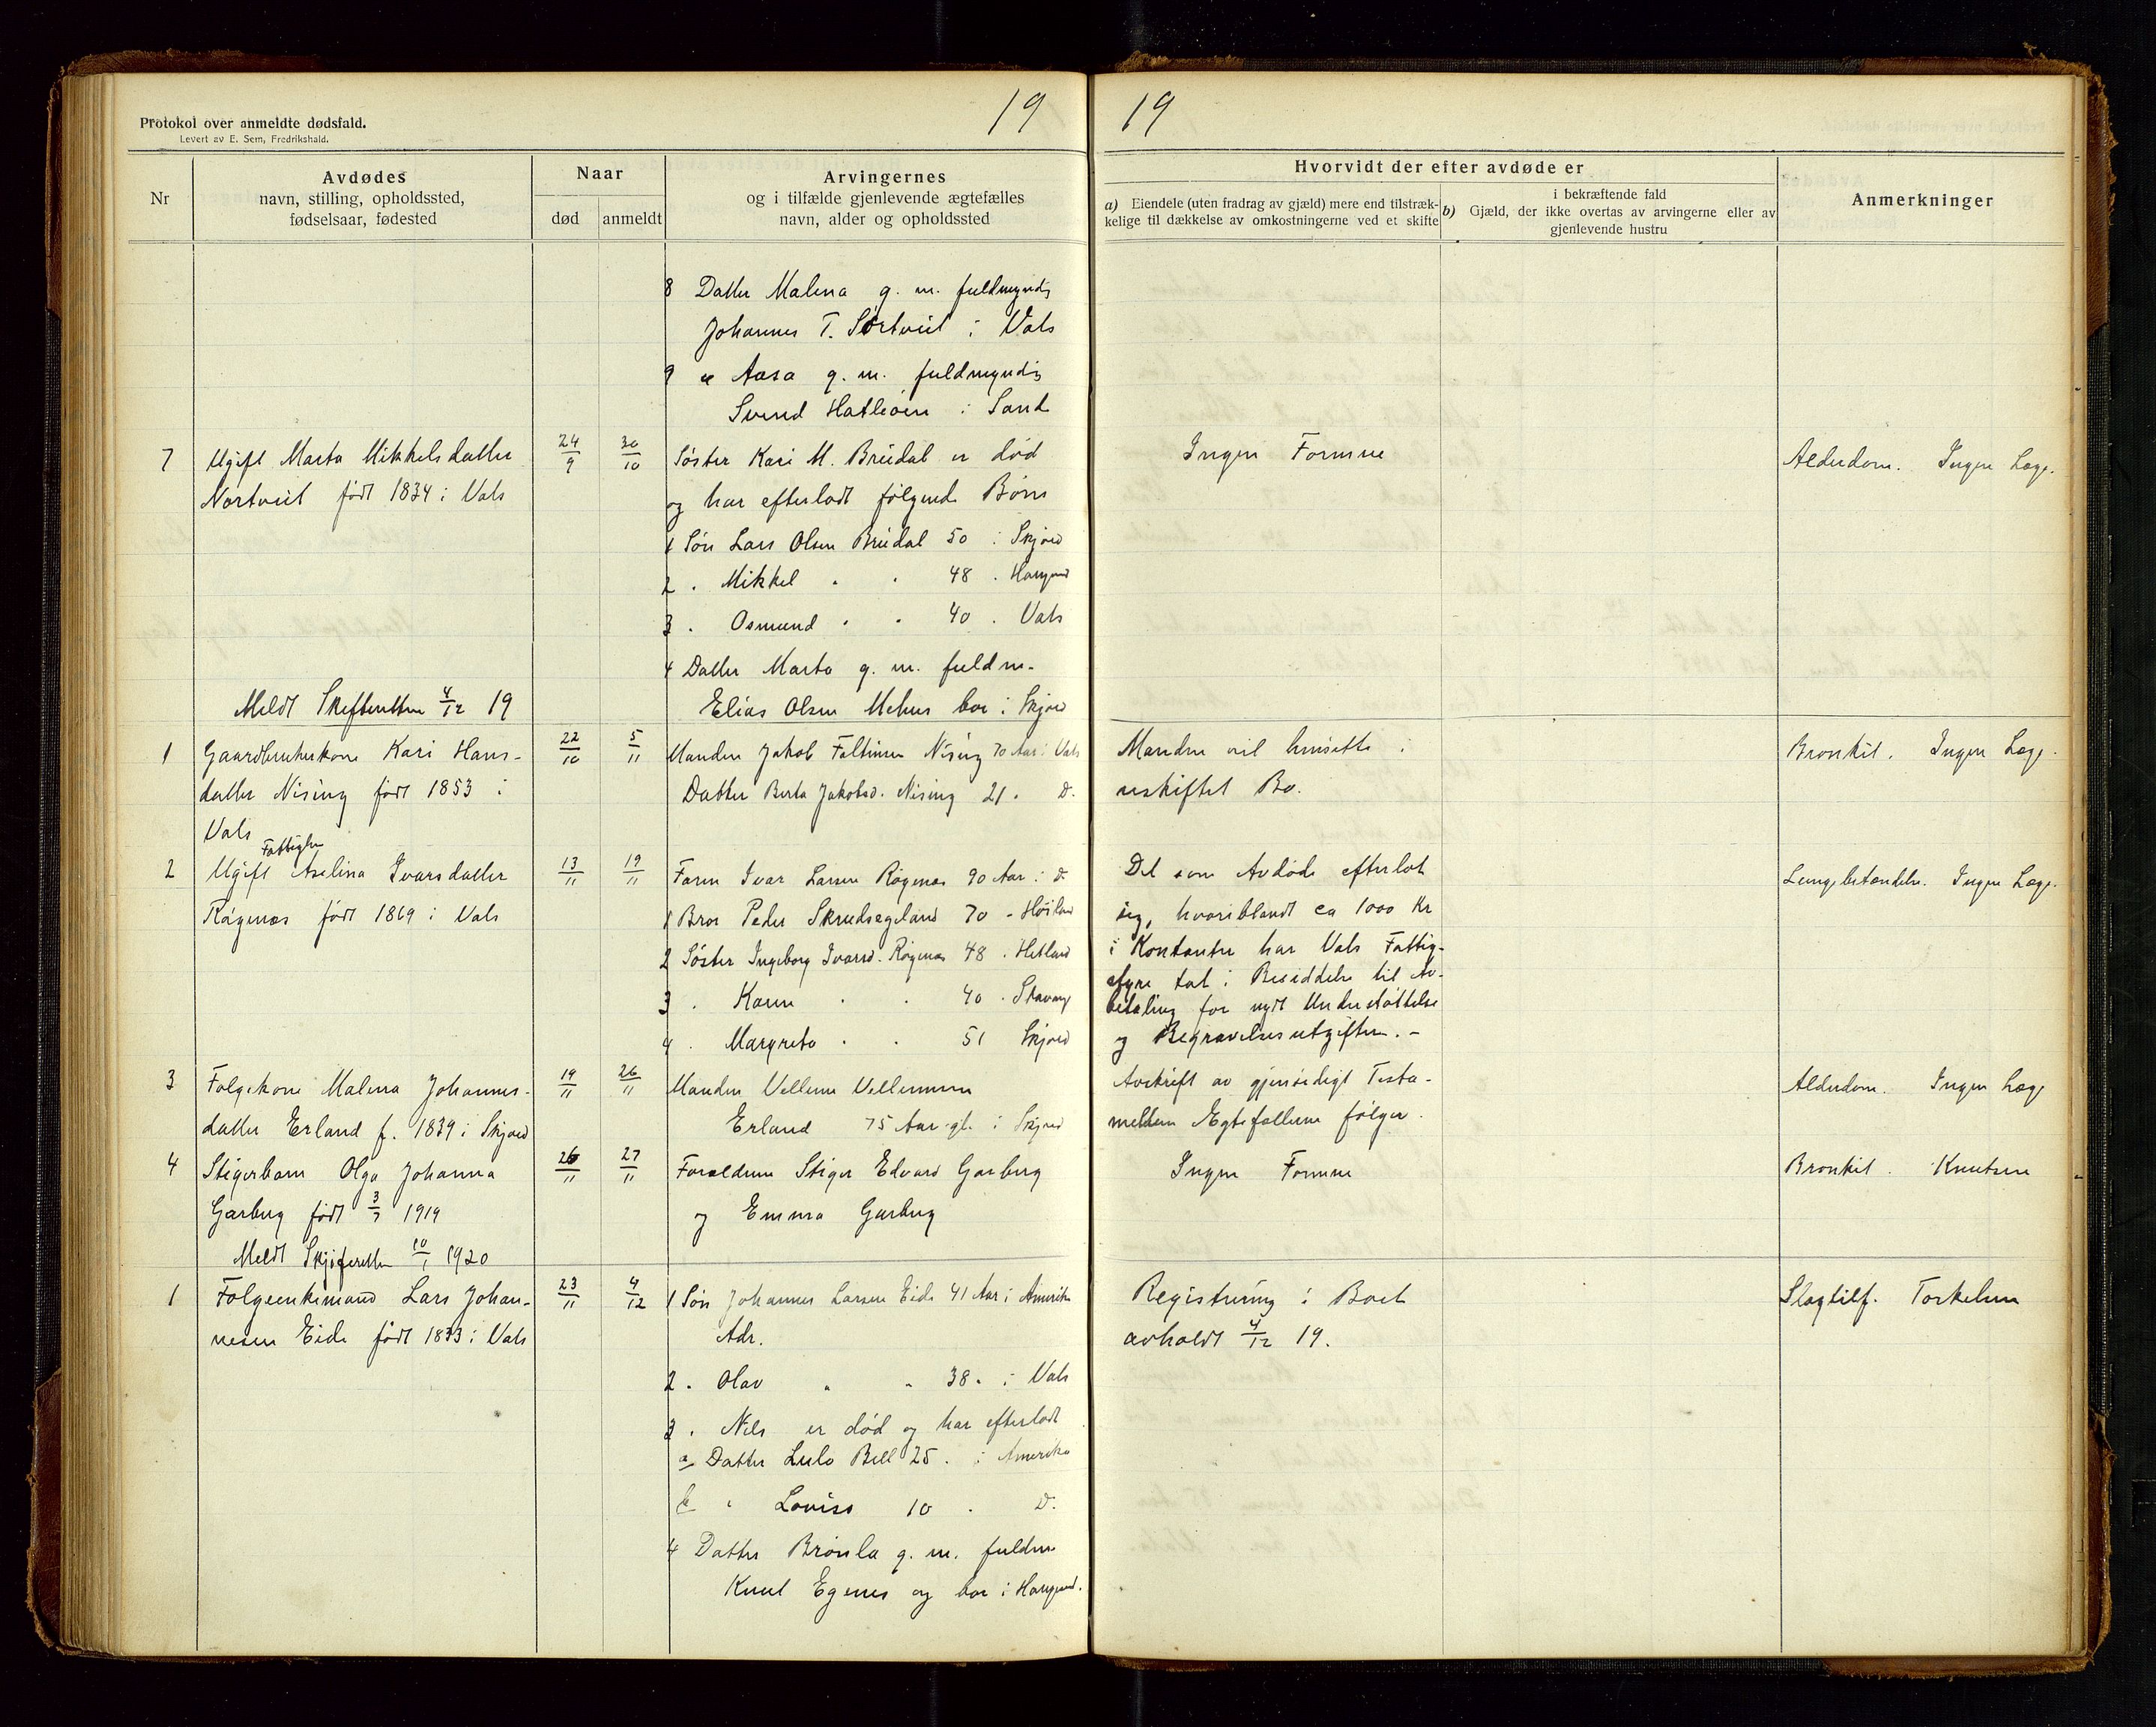 Protokol over anmeldte dødsfald.
Levert av E. Sem, Fredrikshald.
19
19
Nr
Avdødes
navn, stilling, opholdssted,
fødselsaar, fødested
Naar
død
anmeldt
Arvingernes
og i tilfælde gjenlevende ægtefælles
navn, alder og opholdssted
Hvorvidt der efter avdøde er
a) Eiendele (uten fradrag av gjæld) mere end tilstræk-
kelige til dækkelse av omkostningerne ved et skifte
i bekræftende fald
b) Gjæld, der ikke overtas av arvingerne eller av
gjenlevende hustru
Anmerkninger
8 Datter Malena g. m. fuldmyndig
Johannes T. Sørtveit i Vats
9 " Aasa g. m. fuldmyndig
Svend Hatleøen i Sand
7 Ugift Marta Mikkelsdatter
Nortveit født 1834 i Vats
24/9
30/10
Søster Kari M. Breidal er død
og har efterladt følgende Børn
1 Søn Lars Olsen Breidal 50 i Skjold
2 " Mikkel " " 48 "
3 " Osmund " " 40 " Vats
4 Datter Marta g. m. fuldm.
Elias Olsen Mehus bor i Skjold
Ingen Formue
Alderdom. Ingen Læge.
Meldt Skifteretten 4/12 19
1 Gaardbrukerkone Kari Hans-
datter Nising født 1853 i
Vats
22/10
5/11
Manden Jakob Faltinsen Nising 70 Aar i Vats
Datter Berta Jakobsd. Nising 21 " D.
Manden vil hensitte i
uskiftet Bo.
Bronkit. Ingen Læge.
Fattiglem
2 Ugift Aselina Ivarsdatter
Røgenæs født 1869 i Vats
13/11
19/11
Faren Ivar Larsen Røgenæs 90 Aar i D
1 Bror Peder Skrudsegeland 70 -
2 Søster Ingeborg Ivarsd. Røgenæs 48 " Hetland
3 " Karen " " 40 " Stavang
4 " Margreta " " 51 Skjold
Det som Avdøde efterlot
sig, hvoriblandt ca 1000 Kr
i Kontanter har Vats Fattig-
styre tat i Besiddelse til Av-
betaling for nydt Understøttelse
og Begravelsesutgifter. -
Lungebetændelse. Ingen Læge.
3 Følgekone Malena Johannes-
datter Erland f. 1839 i Skjold
19/11
26/11
Manden Vellem Vellemsen
Erland 75 Aar gl. i Skjold
Avskrift av gjensidigt Testa-
mellem Egtefællerne følger.
Alderdom. Ingen Læge
4 Stigerbarn Olga Johanna
Garberg født 3/7 1919
26/11
27/11
Forældrene Stiger Edvard Garberg
og Emma Garberg
Ingen Formue
Bronkit. Knutsen
Meldt Skjifteretten 10/1 1920
1 Følgeenkemand Lars Johan-
nesen Eide født 1833 i Vats
23/11
4/12
1 Søn Johannes Larsen Eide 41 Aar i Amerika
Adr.
2 " Olav " " 38 " i Vats
3 " Nils er død og har efterladt
a Datter Lulo Bell 25 " i Amerika
b " Loviso 10 " D.
4 Datter Brønla g. m. fuldm
Knut Egenes og bor i
Registrering i Boet
avholdt 4/12 19.
Slagtilf. Torkelsen